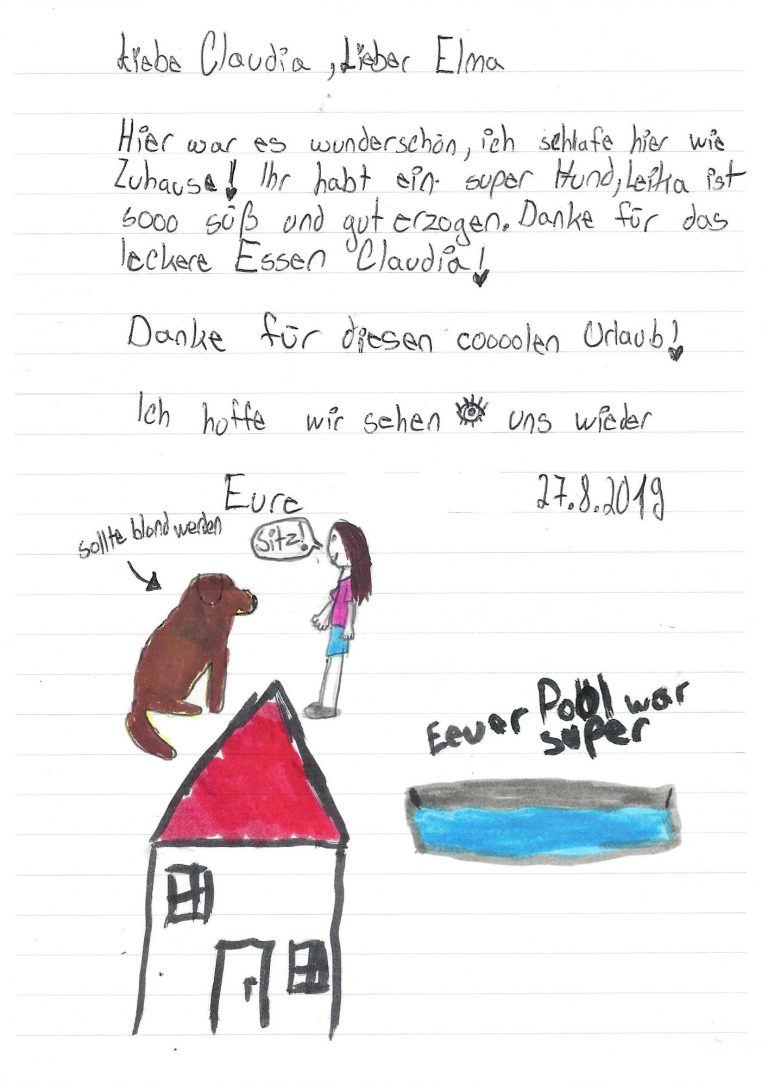 Liebe Claudia, Lieber Elma
Hier war es wunderschön, ich schlafe hier wie
Zuhause! Ihr habt ein super Hund, Leika ist
sooo süß und gut erzogen. Danke für das
leckere Essen Claudia!
Danke für diesen coooolen Urlaub!
Ich hoffe wir sehen uns wieder
Eure
27.8.2019
sollte blond werden
Sitz!
Eeuer Pool war
super